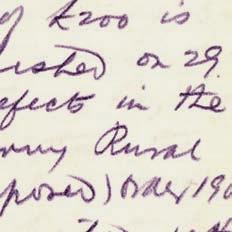 of £200 is
ished on 29
efects in the
Rural
posed) Order 19